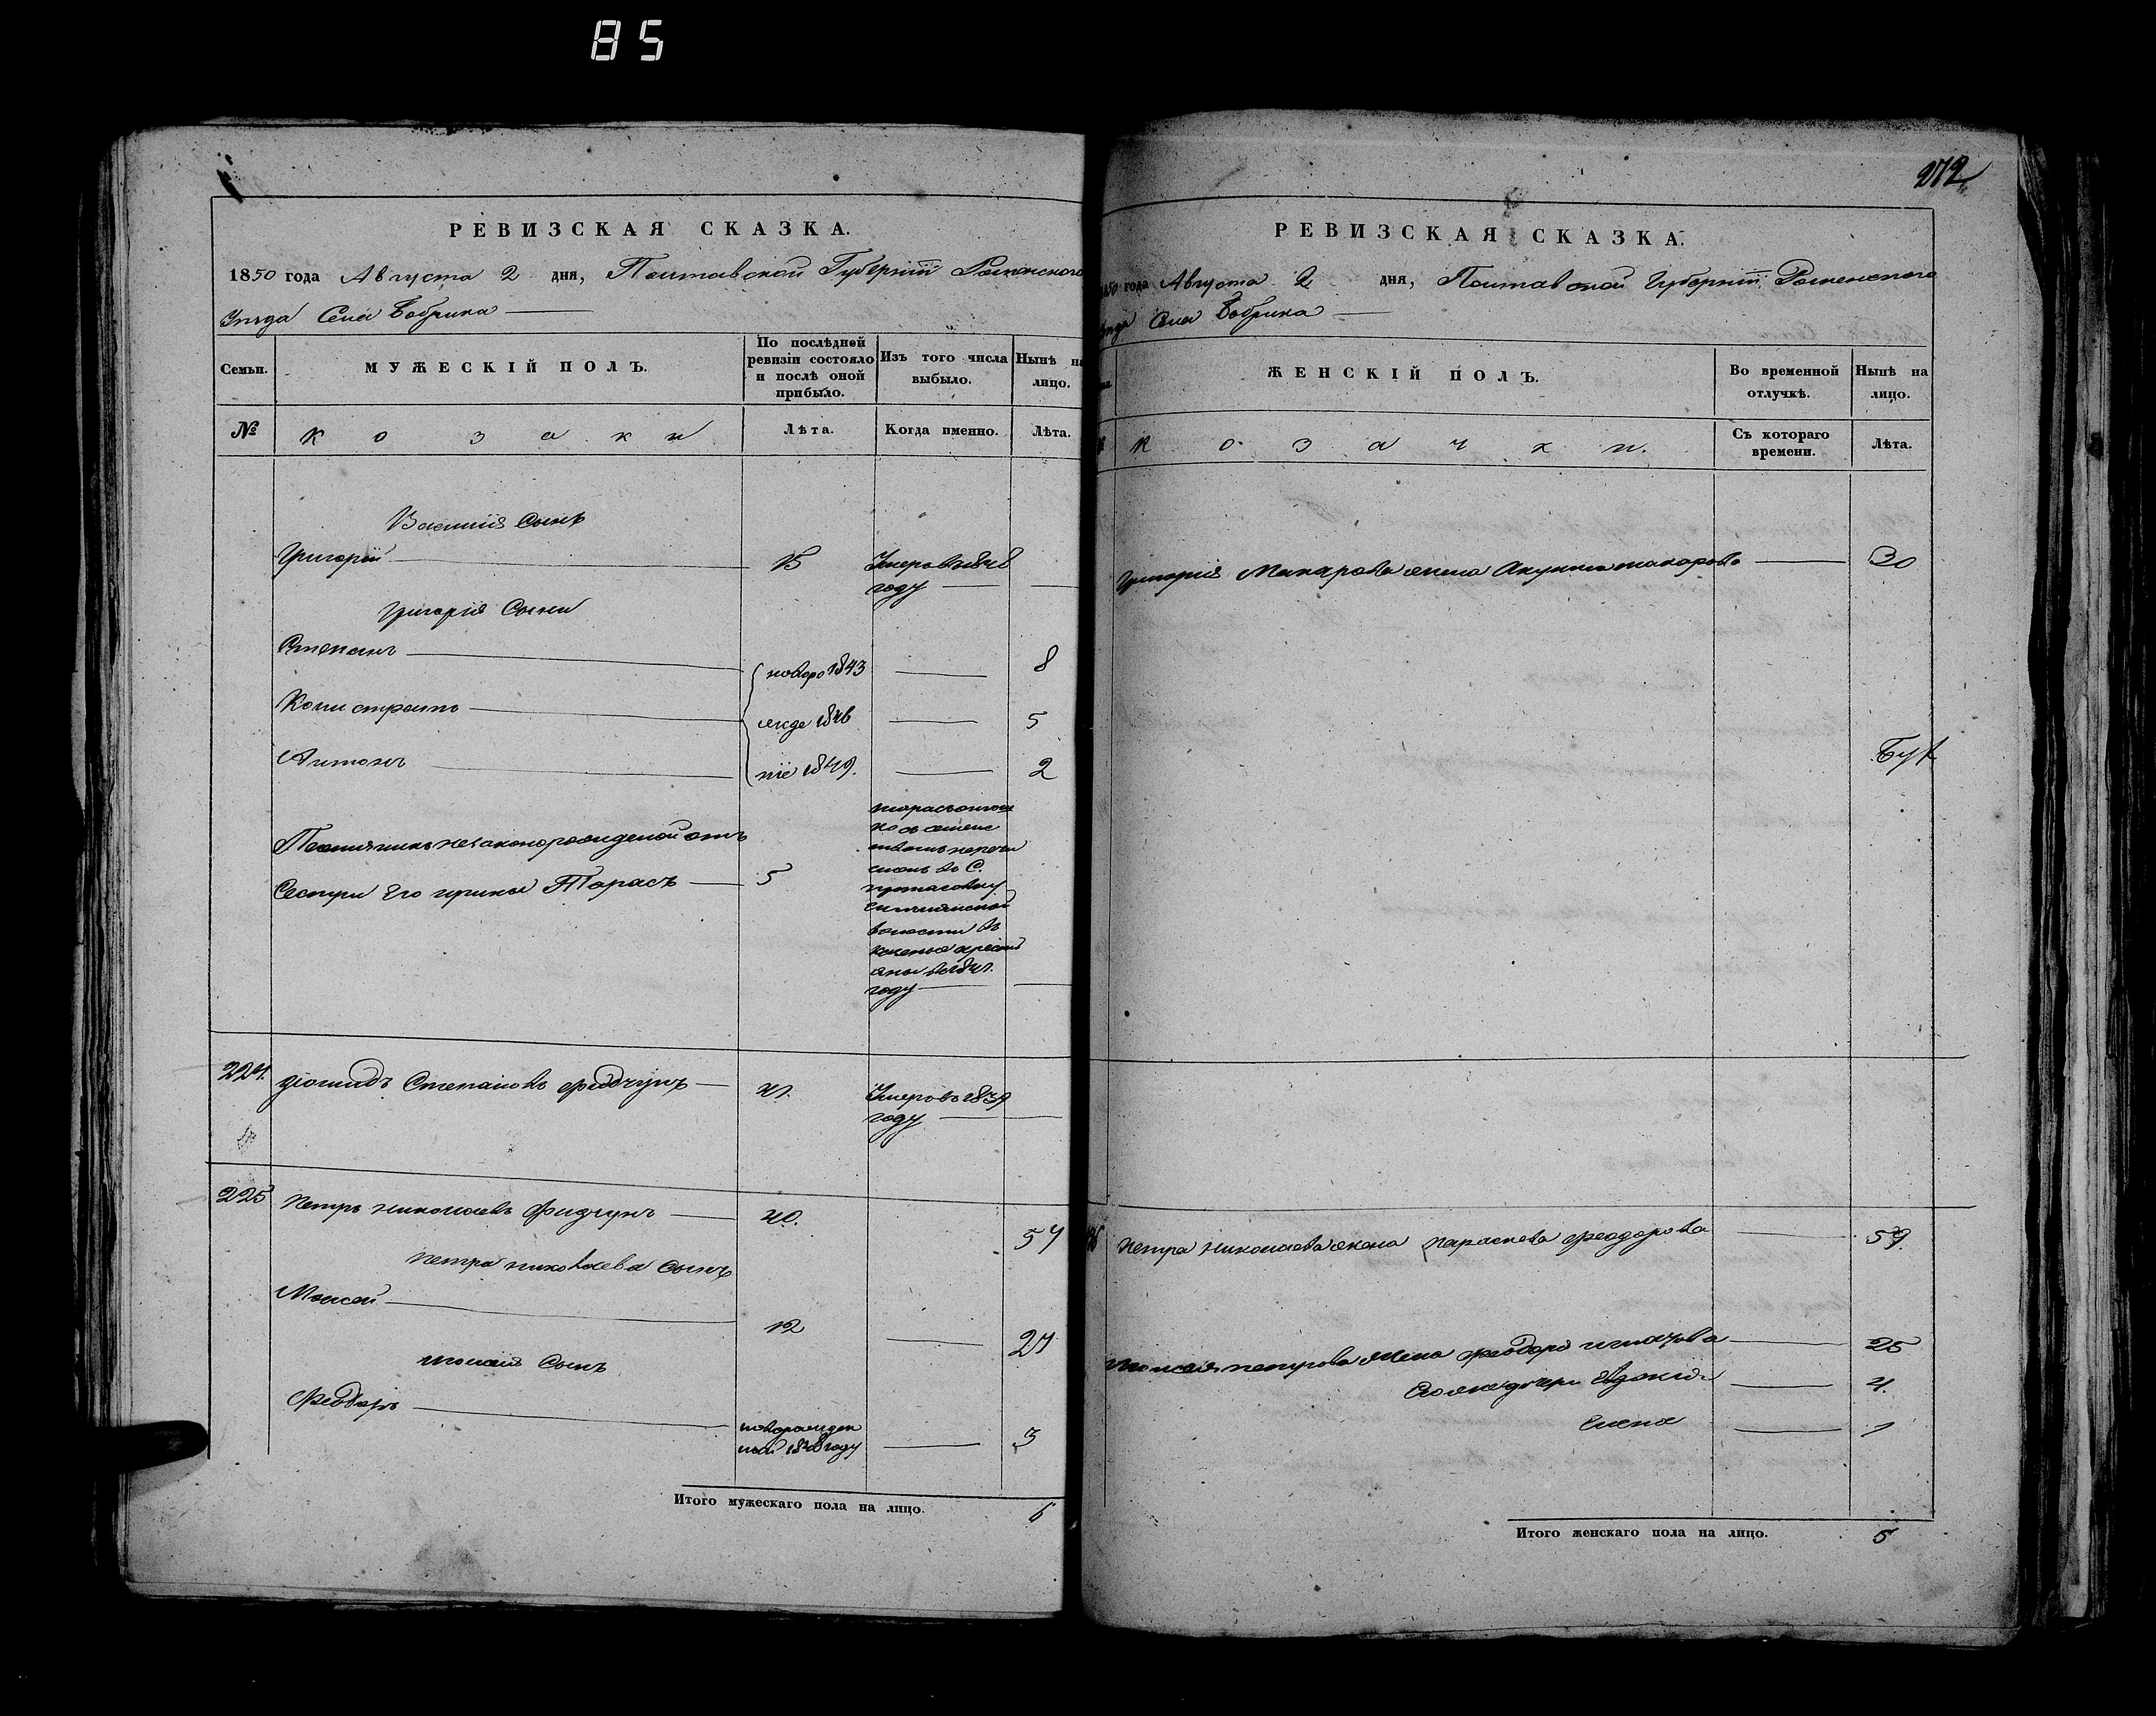 85
272
РЕВИЗСКАЯ СКАЗКА.
1850 года Августа 2 дня, Полтавской Губернїи Роменского
Уезда Села Бобрика
Семьи.
МУЖЕСКІЙ ПОЛЪ.
По послѣдней ревизіи состояло и послѣ оной прибыло.
Изъ того числа выбыло.
Нынѣ на лицо.
№
Козаки
Лѣта.
Когда именно.
Лѣта.
Василия Сынъ
Григорей 15 Умеръ въ 1848
году
Григорїя Сыны
Степанъ новоро 1843 8
Конистратъ жде 1846 5
Антонъ нїе 1849. 2
Племянникъ незаконорожденой отъ
Сестры Его Ирины Тарасъ 5
волости въ
году
224. Степановъ 41. Умеръ въ 1839
году
225 Петръ Николаевъ Фидчунъ 40. 57
Петра Николаева Сынъ
Моисей 12 27
Моисея Сынъ
Феодоръ новорожден
ный 1848 году 3
Итого мужескаго пола на лицо. 6
РЕВИЗСКАЯ СКАЗКА.
1850 года Августа 2 дня, Полтавской Губернїи Роменского
Уезда Села Бобрика
ЖЕНСКІЙ ПОЛЪ.
Во временной отлучкѣ.
Нынѣ на лицо.
Козачки.
Съ котораго времени.
Лѣта.
Григорїя Макарова жена Акулина Макарова 30
Петра Николаева жена Параскева Феодорова 59.
Моисея Петрова жена Феодора 25
Его же дочери Евдокия 4.
Елена 1
Итого женскаго пола на лицо. 5